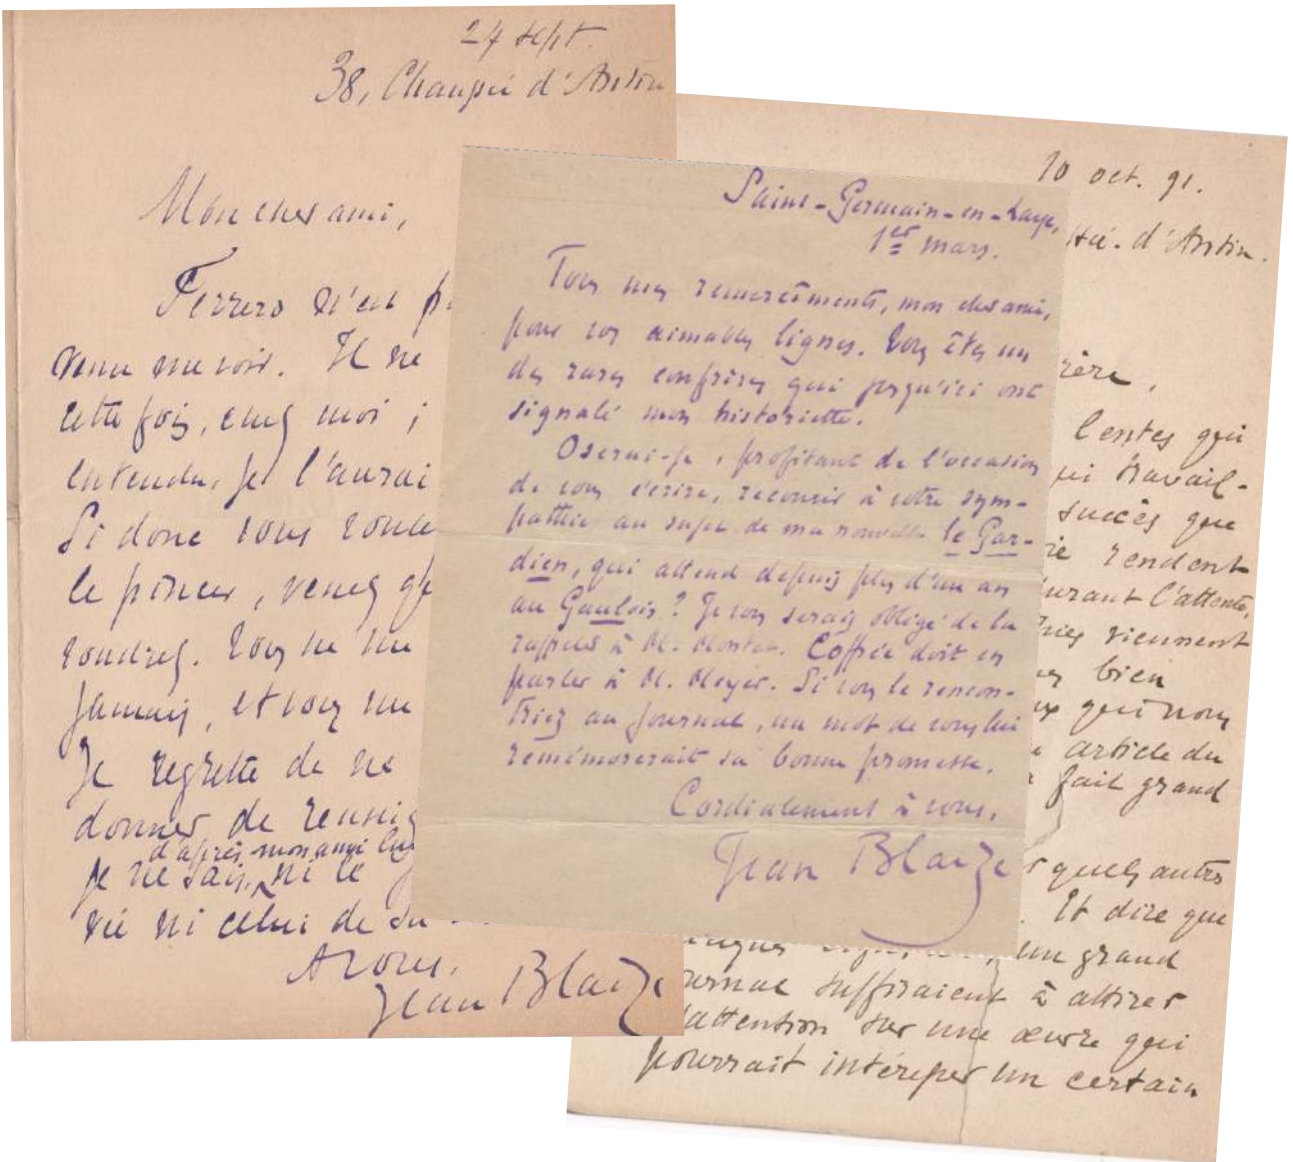 24 sept.
38, Chaussée d'Antin
Mon cher ami,
Ferrero n'est p
venu me voir. Il ne
cette fois, chez moi ;
entendu, je l'aurai
Si donc vous voule
le pincer, venez q
voudrez. Vous ne me
jamais, et vous me
Je regrette de ne
donner de renseig
d'après mon ami
je ne sais, ni le
vié ni celui de sa
A vous.
Jean Blaize
Saint-Germain-en-Laye,
1er mars.
Tous mes remerciments, mon cher ami,
pour vos aimables lignes. Vous êtes un
des rares confrères qui jusqu'ici ont
signalé mon historiette.
Oserai-je, profitant de l'occasion
de vous écrire, recourir à votre sym-
pathie au sujet de ma nouvelle le Gar-
dien, qui attend depuis plus d'un an
au Gaulois ? Je vous serais obligé de la
rappeler à M. Coppée doit en
parler à M. Meyer. Si vous le rencon-
triez au journal, un mot de vous lui
remémorerait sa bonne promesse.
Cordialement à vous,
Jean Blaize
10 oct. 91.
sée. d'Antin.
rère,
lentes qui
ui travail-
succès que
ie rendent
urant l'attente,
viennent
bien
qui nous
article du
fait grand
quelq autres
. Et dire que
un grand
ournal suffiraient à attirer
l'attention sur une œuvre qui
pourrait intéresser un certain